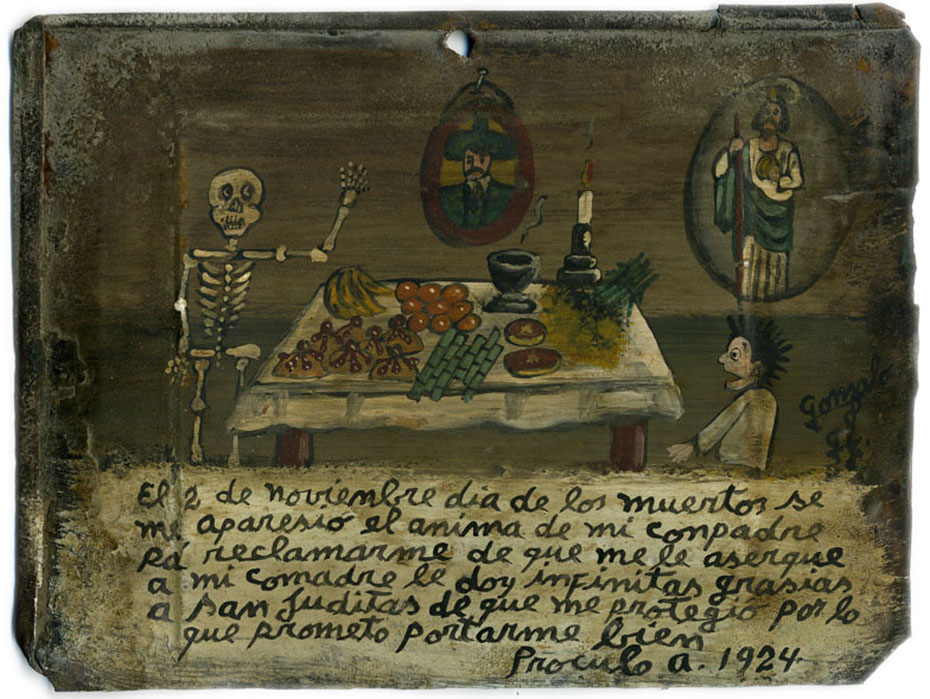 El 2 de noviembre dia de los muertos se
me aparesió el anima de mi conpadre
pá reclamarme de que me le aserque
a mi comadre le doy infinitas grasias
a san Juditas de que me protegio por lo
que prometo portarme bien
Proculo a. 1924
Gonzalo